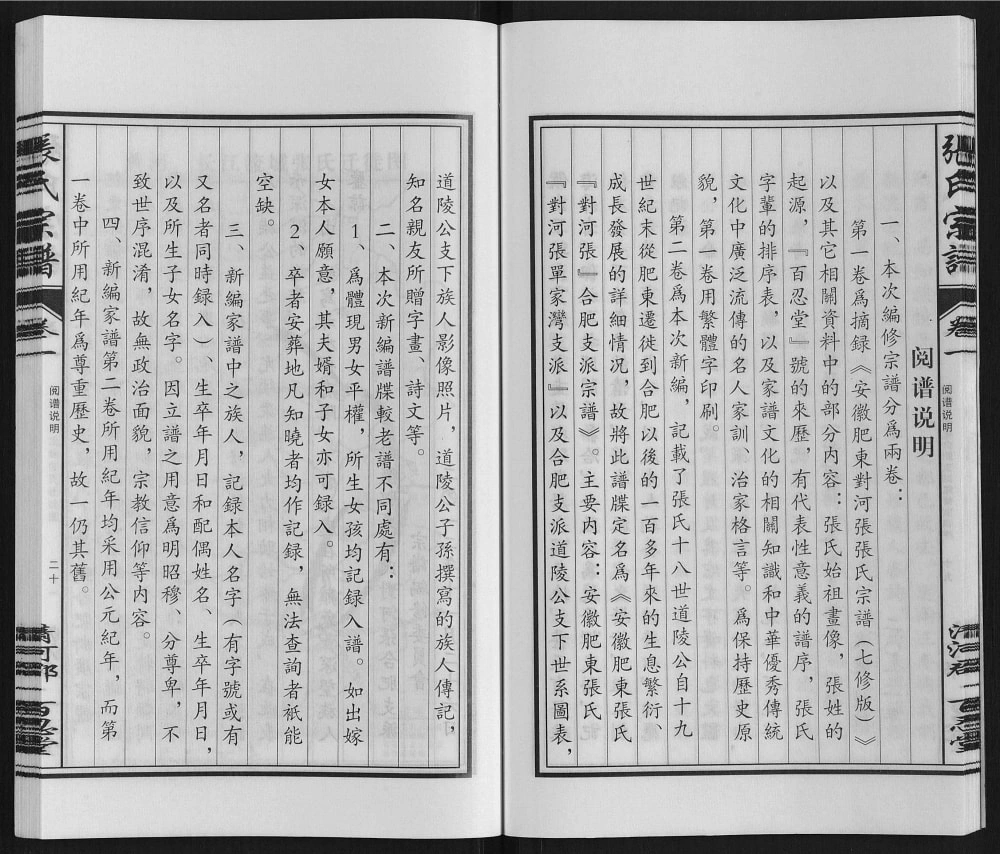 張氏宗譜
卷一
阅谱说明
清河郡
百忍堂
阅谱说明
一、本次編修宗譜分爲兩卷：
第一卷爲摘録《安徽肥東對河張張氏宗譜（七修版）》
以及其它相關資料中的部分内容：張氏始祖畫像，張姓的
起源，『百忍堂』號的來歷，有代表性意義的譜序，張氏
字輩的排序表，以及家譜文化的相關知識和中華優秀傳統
文化中廣泛流傳的名人家訓、治家格言等。爲保持歷史原
貌，第一卷用繁體字印刷。
第二卷爲本次新編，記載了張氏十八世道陵公自十九
世紀末從肥東遷徙到合肥以後的一百多年來的生息繁衍、
成長發展的詳細情况，故將此譜牒定名爲《安徽肥東張氏
『對河張』合肥支派宗譜》。主要内容：安徽肥東張氏
『對河張單家灣支派』以及合肥支派道陵公支下世系圖表，
道陵公支下族人影像照片，道陵公子孫撰寫的族人傳記，
知名親友所贈字畫、詩文等。
二、本次新編譜牒較老譜不同處有：
1、爲體現男女平權，所生女孩均記録入譜。如出嫁
女本人願意，其夫婿和子女亦可録入。
2、卒者安葬地凡知曉者均作記録，無法查詢者衹能
空缺。
三、新編家譜中之族人，記録本人名字（有字號或有
又名者同時録入）、生卒年月日和配偶姓名、生卒年月日，
以及所生子女名字。因立譜之用意爲明昭穆、分尊卑，不
致世序混淆，故無政治面貌，宗教信仰等内容。
四、新編家譜第二卷所用紀年均采用公元紀年，而第
一卷中所用紀年爲尊重歷史，故一仍其舊。
張氏宗譜
卷一
阅谱说明
二十
清河郡
百忍堂